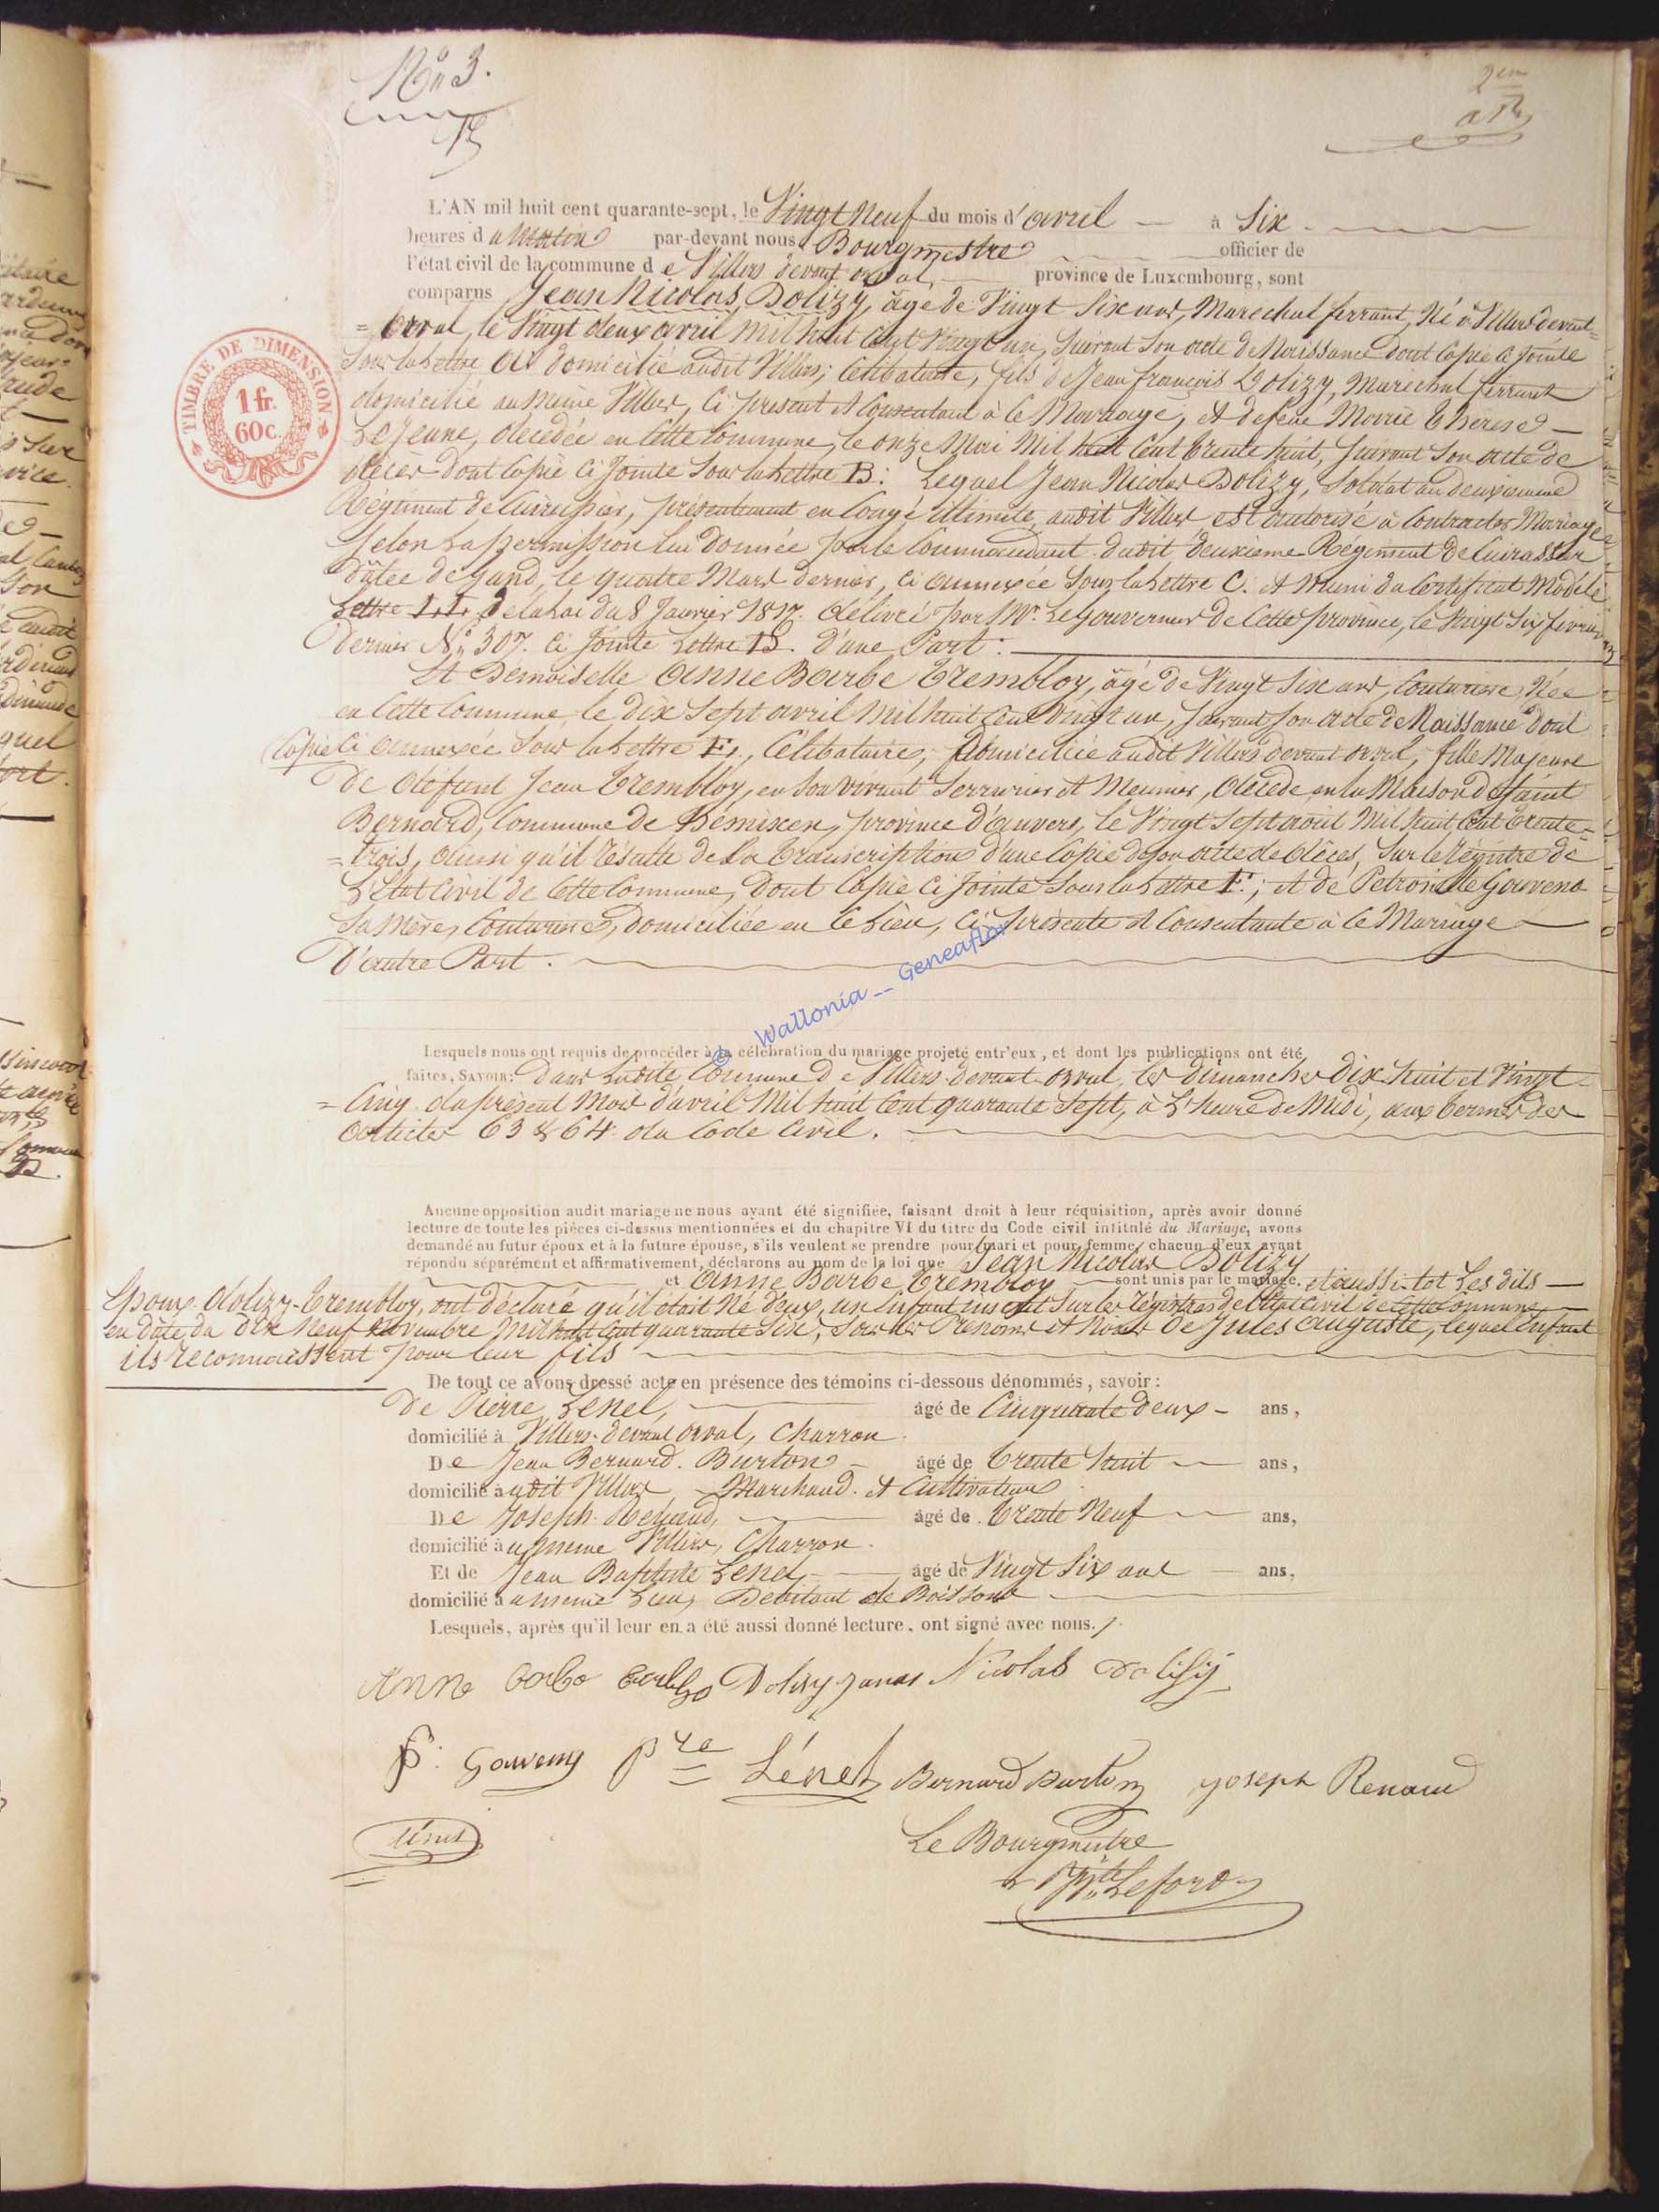 N° 3.
L'AN mil huit cent quarante-sept, le Vingt Neuf du mois d'avril à Six
heures du Matin par-devant nous Bourgmestre officier de
l'état civil de la commune de Villers devant orval, province de Luxembourg, sont
comparus Jean Nicolas Dolizy, âgé de Vingt Six ans, Marechal ferrant, Né à Villers devant=
=orval, le Vingt deux avril Mil huit Cent Vingt un, Suivant Son acte de Naissance dont Copie Ci Jointe
Sous la Lettre A. domicilié audit Villers; Célibataire, fils de Jean françois Dolizy, Marechal ferrant
domicilié au même Villers, Ci présent et Consentant à Ce Mariage, et de feue Marie Therese
LeJeune, décédée en Cette Commune, le onze Mai Mil huit Cent trente huit, Suivant Son acte de
décès dont Copie Ci Jointe Sous la Lettre B: Lequel Jean Nicolas Dolizy, Soldat au deuxieme
Régiment de Cuirassier, présentement en Congé illimité, audit Villers est autorisé à Contracter Mariage
Selon La permission lui donnée par le Commandant dudit deuxieme Régiment de Cuirassier
Datée de gand, le quatre Mars dernier, ci annexée Sous la Lettre C. et Muni du Certificat Modèle
Lettre L.L. de la Loi du 8 Janvier 1817. délivré par Mr. Le Gouverneur de Cette province, le Vingt Six fevrier
Dernier N° 307. Ci Jointe Lettre D. D'une Part:
Et Demoiselle Anne Barbe Trembloy, âgé de Vingt Six ans, Couturiere, Née
en Cette Commune, le dix Sept avril Mil huit Cent Vingt un, Suivant Son acte de Naissance dont
Copie Ci annexée Sous la Lettre E, Célibataire, Domiciliée audit Villers devant orval, fille Majeure
De défunt Jean Trembloy, en Son vivant Serrurier et Meunier, décédé en la Maison de Saint
Bernard, Commune de Hémixen, province d'anvers, le Vingt Sept aout Mil huit Cent trente=
=trois, ainsi qu'il résulte de La transcription d'une Copie de Son acte de décès, Sur le régistre de
L'Etat Civil de Cette Commune, Dont Copie Ci Jointe Sous la Lettre F.; et de Petronille Gouveno
Sa Mère, Couturiere, Domiciliée en Ce Lieu, Ci présente et Consentante à Ce Mariage
D'autre Part.
Lesquels nous ont requis de procéder à la célébration du mariage projeté entr'eux, et dont les publications ont été
faites, SAVOIR: Dans Ladite Commune de Villers devant orval, les dimanches Dix huit et Vingt
=Cinq du présent Mois d'avril Mil huit Cent quarante Sept, à L'heure de Midi, aux termes des
articles 63 & 64 du Code Civil.
Aucune opposition audit mariage ne nous ayant été signifiée, faisant droit à leur réquisition, après avoir donné
lecture de toute les pièces ci-dessus mentionnées et du chapitre VI du titre du Code civil intitulé du Mariage, avons
demandé au futur époux et à la future épouse, s'ils veulent se prendre pour mari et pour femme, chacun d'eux ayant
répondu séparément et affirmativement, déclarons au nom de la loi que Jean Nicolas Dolizy
et Anne Barbe Trembloy sont unis par le mariage. et aussi-tot Les dits
Epoux Dolizy-Trembloy, ont déclaré qu'il était Né d'eux, un Enfant inscrit Sur les régistres de l'Etat Civil de Cette Commune
en date du dix Neuf Novembre Mil huit Cent quarante Six, Sous les Prénoms et Noms de Jules auguste, lequel Enfant
ils reconnaissent pour leur fils
De tout ce avons dressé acte en présence des témoins ci-dessous dénommés, savoir:
De Pierre Lenel, âgé de Cinquante deux ans,
domicilié à Villers-devant orval, Charron.
De Jean Bernard Burton âgé de trente huit ans,
domicilié audit Villers, Marchand et Cultivateur
De Joseph Renaud, âgé de trente Neuf ans,
domicilié au meme Villers, Charron.
Et de Jean Baptiste Lenel âgé de Vingt Six ans ans,
domicilié au meme Lieu, Debitant de Boissons
Lesquels, après qu'il leur en a été aussi donné lecture, ont signé avec nous.
Nicolas
P: Gouveny Pre Lénel Bernard Burton Joseph Renaud
Lénel
Le Bourgmestre
TIMBRE DE DIMENSION
1 fr.
60 c.
© Wallonia -- Geneaflor